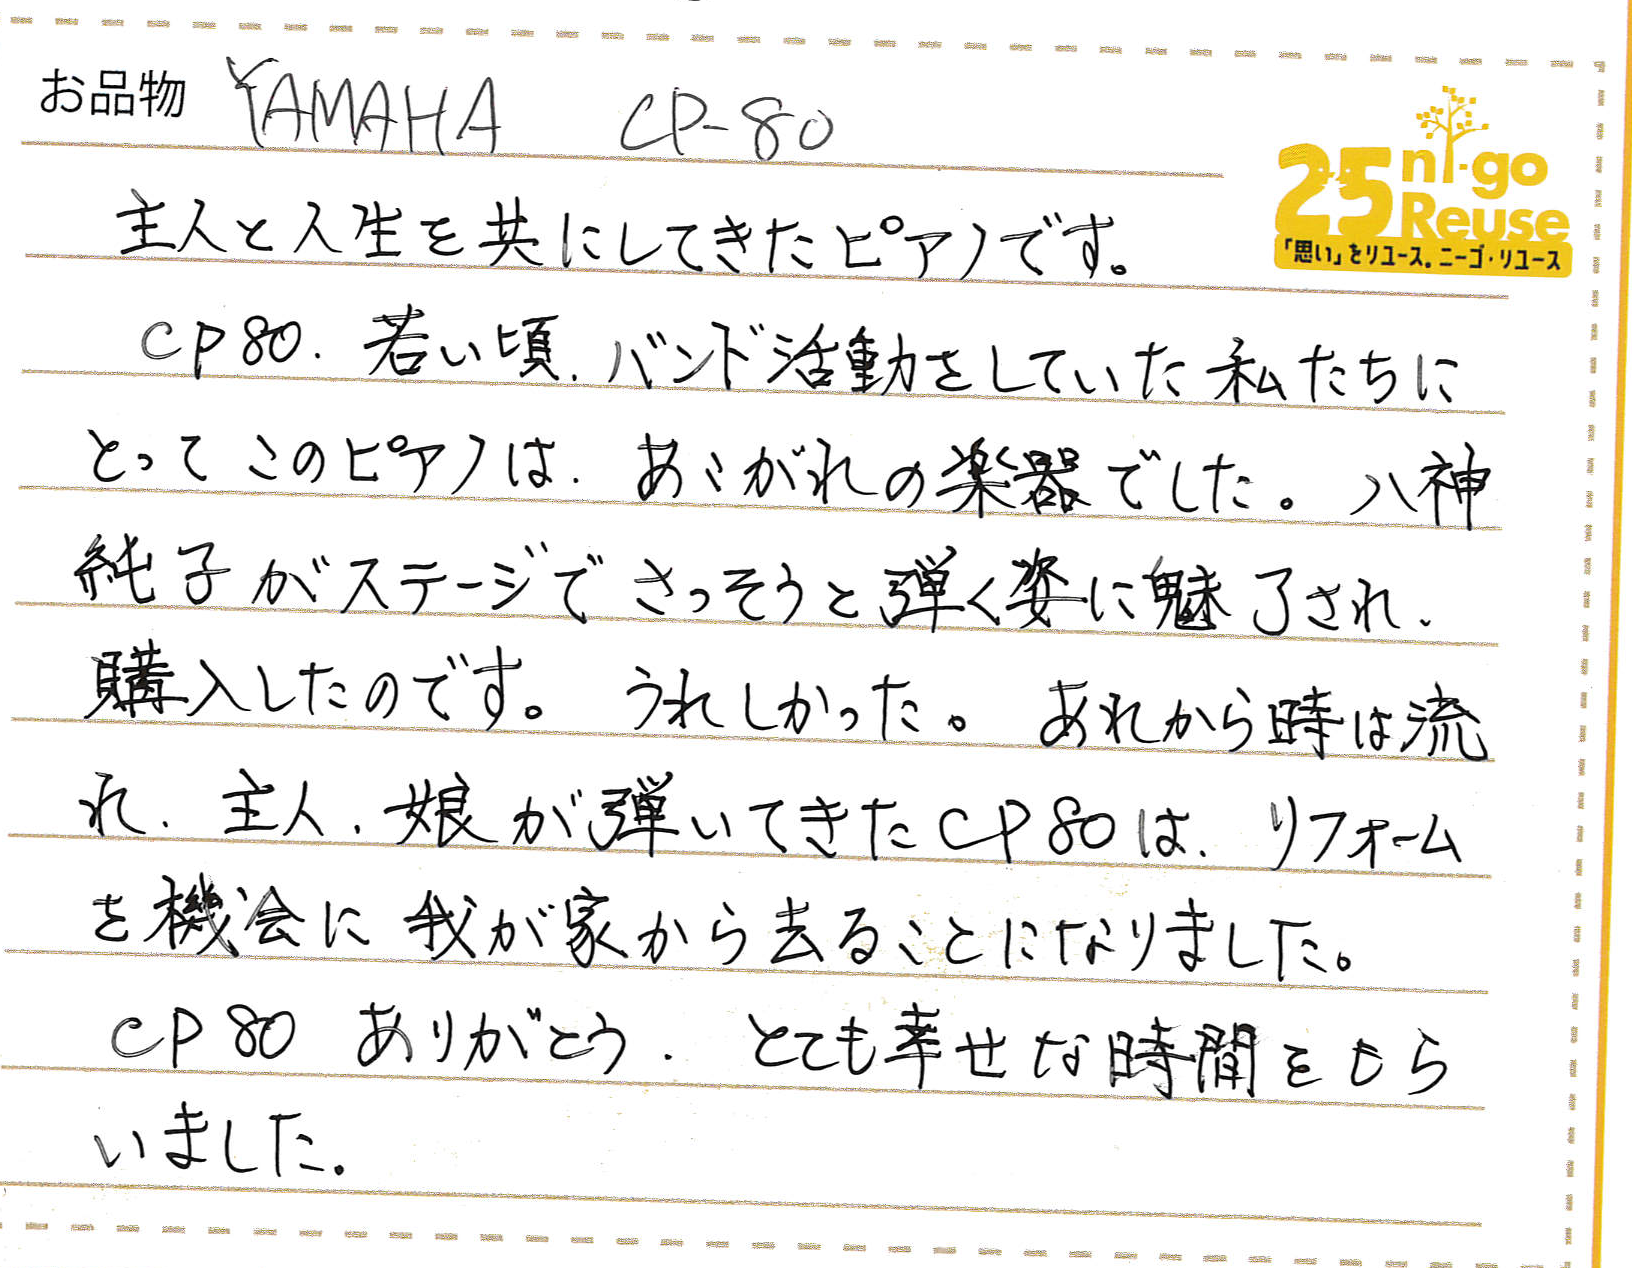 お品物 YAMAHA CP-80
25 ni-go
Reuse
「思い」をリユース。ニーゴ・リユース
主人と人生を共にしてきたピアノです。
CP80. 若い頃、バンド活動をしていた私たちに
とってこのピアノは、あこがれの楽器でした。八神
純子がステージでさっそうと弾く姿に魅了され、
購入したのです。うれしかった。あれから時は流
れ、主人、娘が弾いてきたCP80は、リフォーム
を機会に我が家から去ることになりました。
CP80 ありがとう. とても幸せな時間をもら
いました.